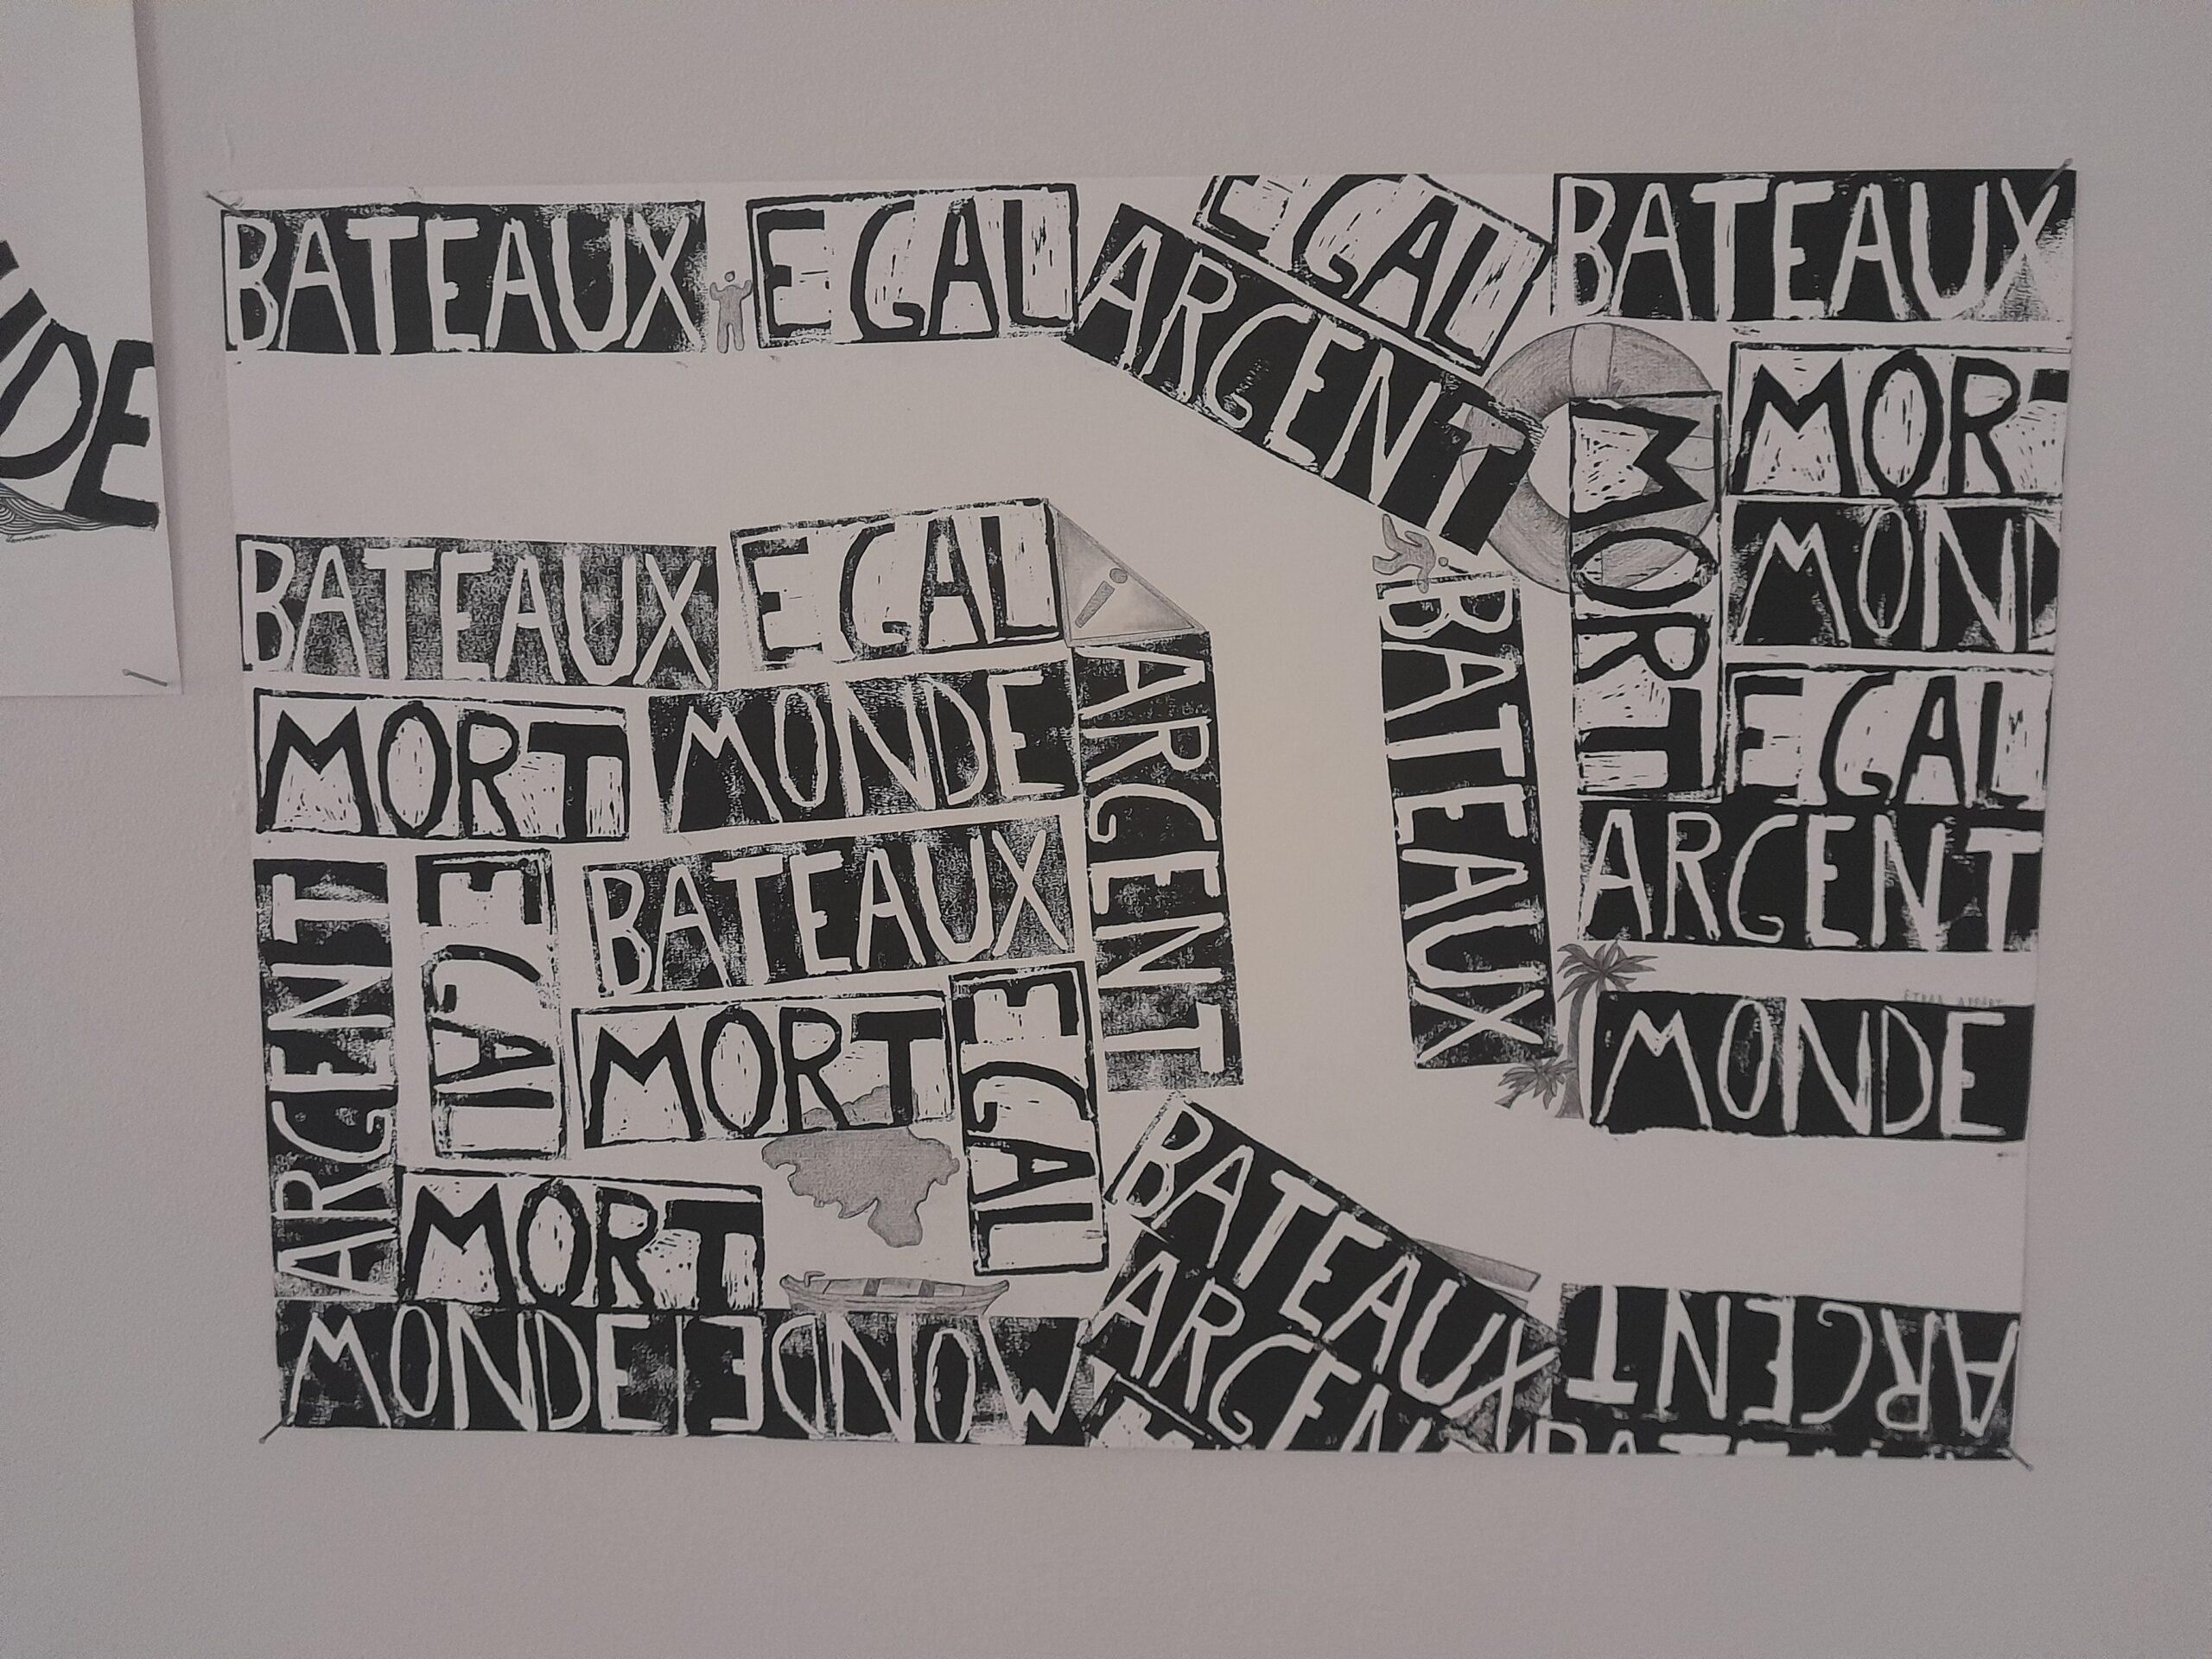 BATEAUX EGAL
EGAL
ARGENT
BATEAUX
MORT
MORT
MOND
EGAL
ARGENT
MONDE
BATEAUX
BATEAUX EGAL
MORT MONDE
ARGENT
ARGENT
EGAL
BATEAUX
MORT
EGAL
MORT
MONDE
MONDE
BATEAUX
ARGEN
ARGENT
BATE
UDE